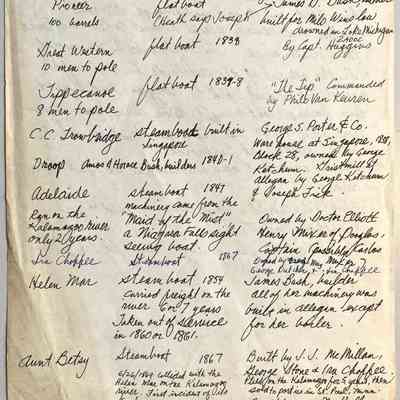 Pioneer flat boat James D. Bush,
100 barrels (Heath says Joseph) built for Milo Winslow
drowned in Lake Michigan
Great Western flat boat 1838 By Capt. Huggins
10 men to pole
Tippecanoe flat boat 1839-8 "The Tip" Commanded
8 men to pole by Philo Van Keuren
C.C. Trowbridge steamboat built in George S. Porter & Co.
Singapore Ware house at Singapore,
Block 28, owned by George
Droop Amos & Horace Bush, builders 1840-1 Ketchum. Grist mill at
Allegan by George Ketchum
Adelaide steamboat 1847 & Joseph Fisk.
machinery came from the
Ran on the "Maid of the Mist" Owned by Doctor Elliott
Kalamazoo River a Niagara Falls sight Henry Mixer of Douglas,
only 2 years. seeing boat. Captain (possibly)
Ira Choppee Steamboat 1867 Owned by
George Dutcher, Ira Choppee
Helen Mar steamboat 1854 James Bush, builder
carried freight on the all of her machinery was
river 6 or 7 years built in Allegan except
Taken out of service for her boiler.
in 1860 or 1861.
Aunt Betsy Steamboat 1867 Built by J.J. McMillan,
George Stone & Ira Choppee.
collided with the
Helen Mar on the Kalamazoo
river. First incident of this sold to parties in St. Paul, Minn.